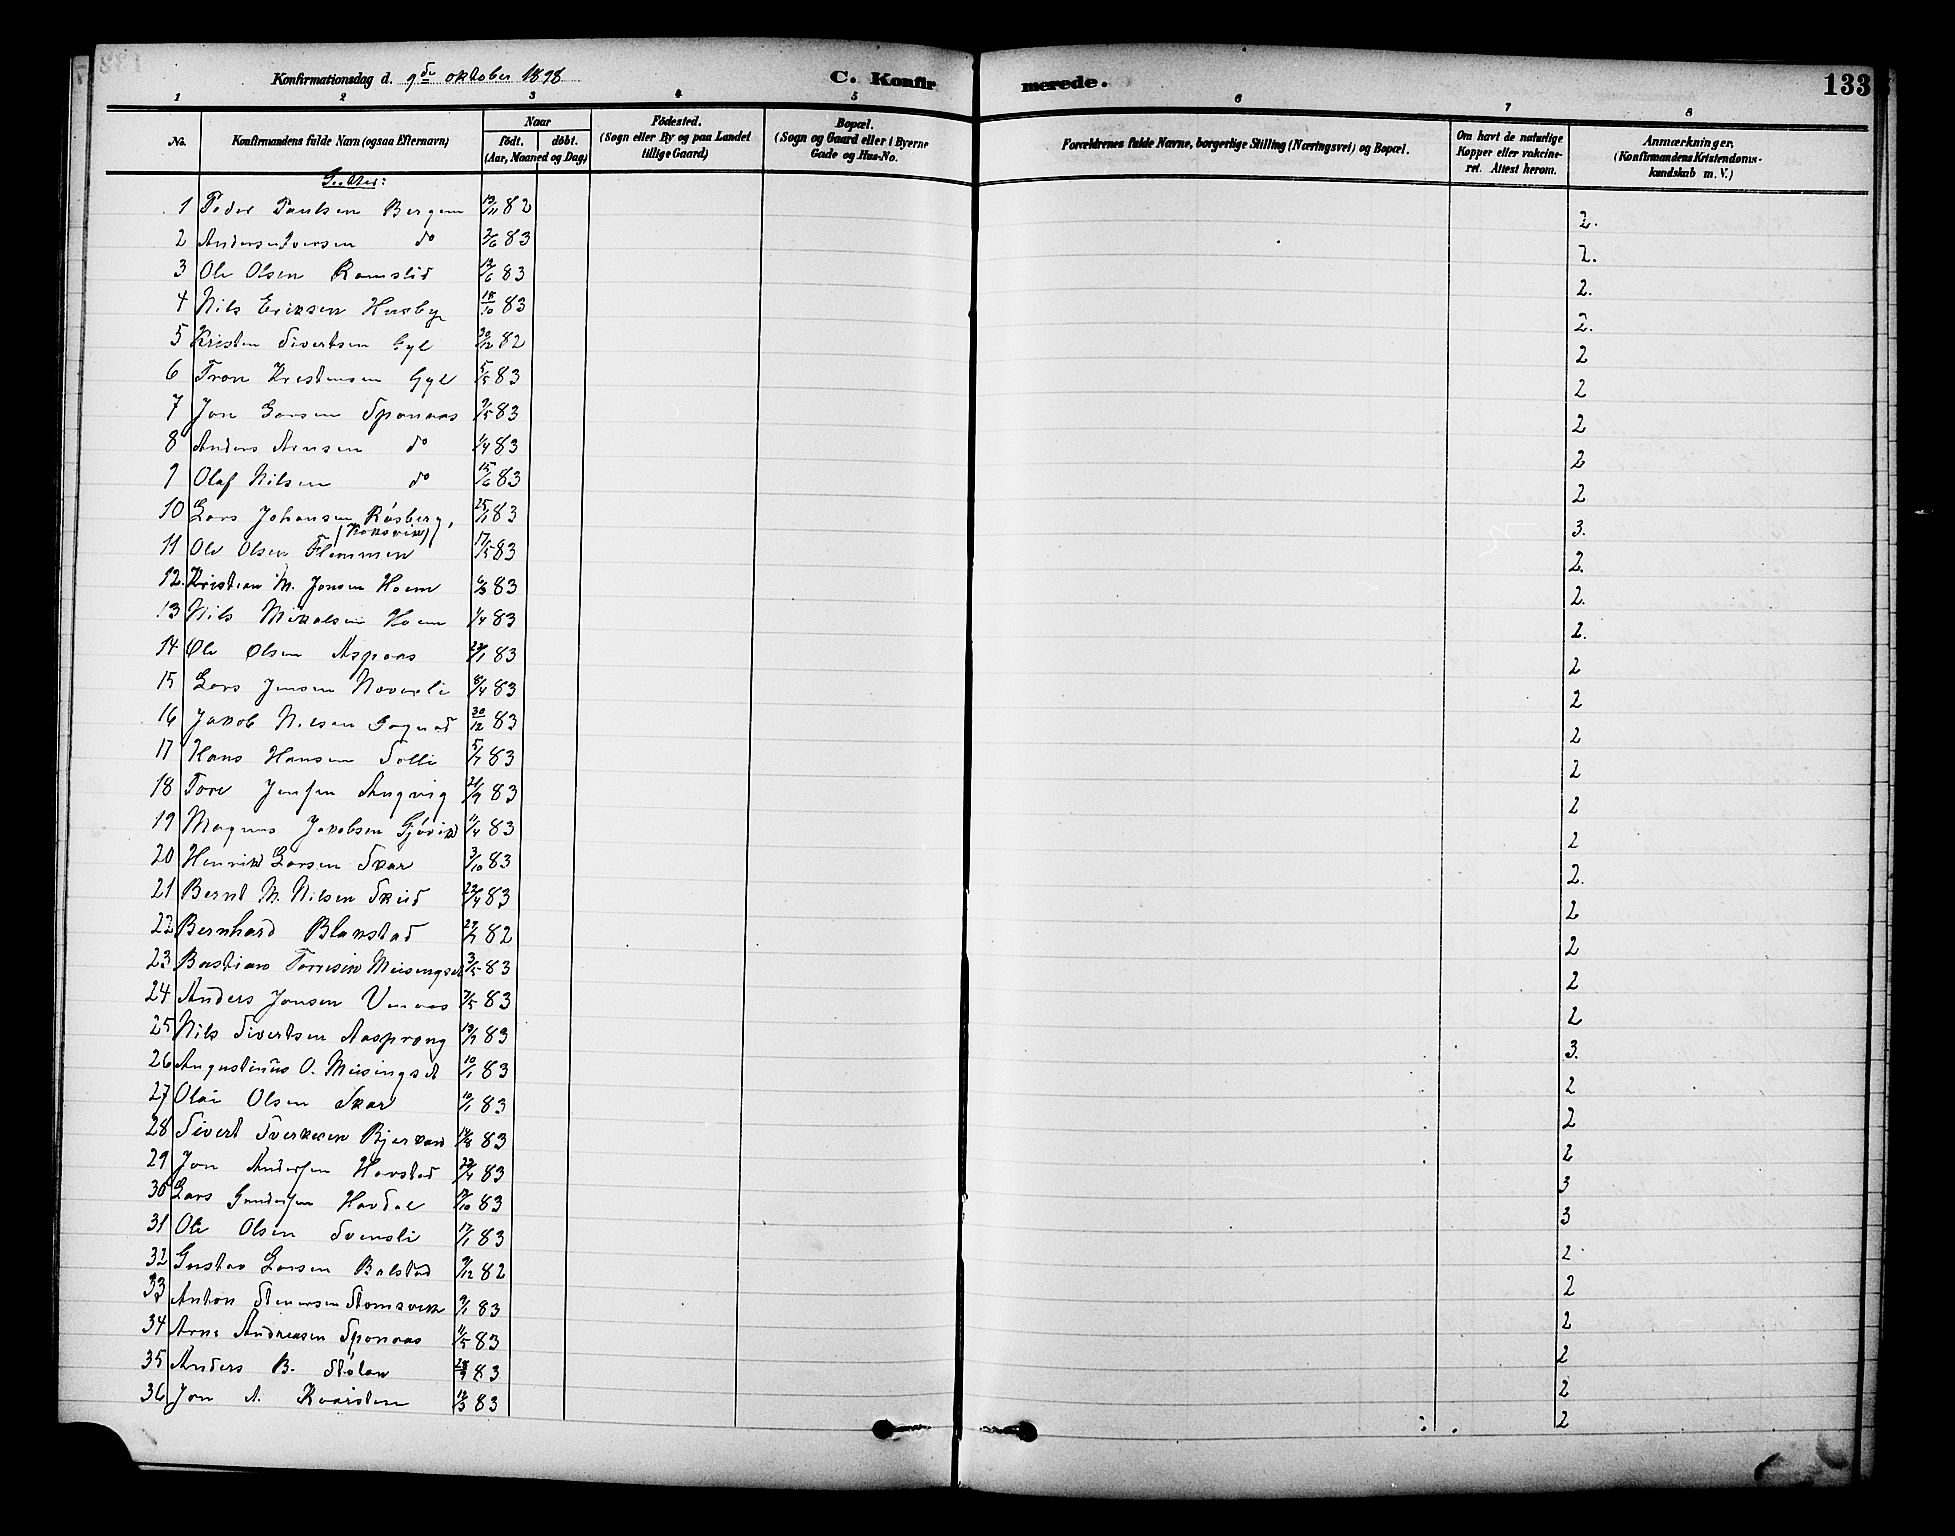 Konfirmationsdag d. 9de oktober 1898
C. Konfirmerede.
133
1 2 3 4 5 6 7 8
No.
Konfirmandens fulde Navn (ogsaa Efternavn)
Naar
født. døbt.
(Aar, Maaned og Dag)
Födested.
(Sogn eller By og paa Landet
tillige Gaard)
Bopæl.
(Sogn og Gaard eller i Byerne
Gade og Hus-No.
Forældrenes fulde Navne, borgerlige Stilling (Næringsvei) og Bopæl.
Om havt de naturlige
Kopper eller vakcine-
ret. Attest herom.
Anmærkninger.
(Konfirmandens Kristendoms-
kundskab m. V.)
Gutter:
1 Peder Paulsen Bergem 19/11 82 2.
2 Anders Iversen do 2/6 83 2.
3 Ole Olsen Ramslid 12/6 83 2.
4 Nils Eriksen Husby 18/10 83 2.
5 Kristen Sivertsen Gyl 30/12 82 2
6 Tron Kristensen Gyl 5/5 83 2
7 Jon Larsen Sponaas 9/5 83 2
8 Anders Arnsen do 1/4 83 2
9 Olaf Nilsen do 15/6 83 2
10 Lars Johansen Røsberg, 25/1 83 3.
(Koksvik)
11 Ole Olsen Flemmen 17/5 83 2.
12. Kristian M. Jonsen Hoem 83 2.
13 Nils Mikalsen Hoem 1/4 83 2.
14 Ole Olsen Aspaas 83 2
15 Lars Jensen Noverli 8/4 83 2
16 Jakob Nilsen Gognad 30/12 83 2
17 Hans Hansen Solli 83 2
18 Tore Jensen Angvig 21/9 83 2
19 Magnus Jakobsen Gjøvik 11/4 83 2
20 Henrik Larsen Skar 3/10 83 2.
21 Bernt M. Nilsen Skeid 22/4 83 2
22 Bernhard Blakstad 82 2
23 Bastian Torresen Meisingset 3/5 83 2
24 Anders Jonsen Venaas 7/5 83 2
25 Nils Sivertsen Aasprong 83 3.
26 Augustinus O. Meisingset 10/1 83 2
27 Olai Olsen Skar 83 2
28 Sivert Sverksen Bjerkan 14/8 83 2
29 Jon Andersen Havstad 83 3
30 Lars Gundersen Havdal 83 3
31 Ole Olsen Svensli 17/1 83 2
32 Gustav Larsen Bolstad 9/12 82 2
33 Anton Stenersen Stomsvik 9/1 83 2
34 Arne Andreasen Sponaas 11/5 83 2
35 Anders B. Stølan 83 2
36 Jon A. Kvarsten 12/3 83 2